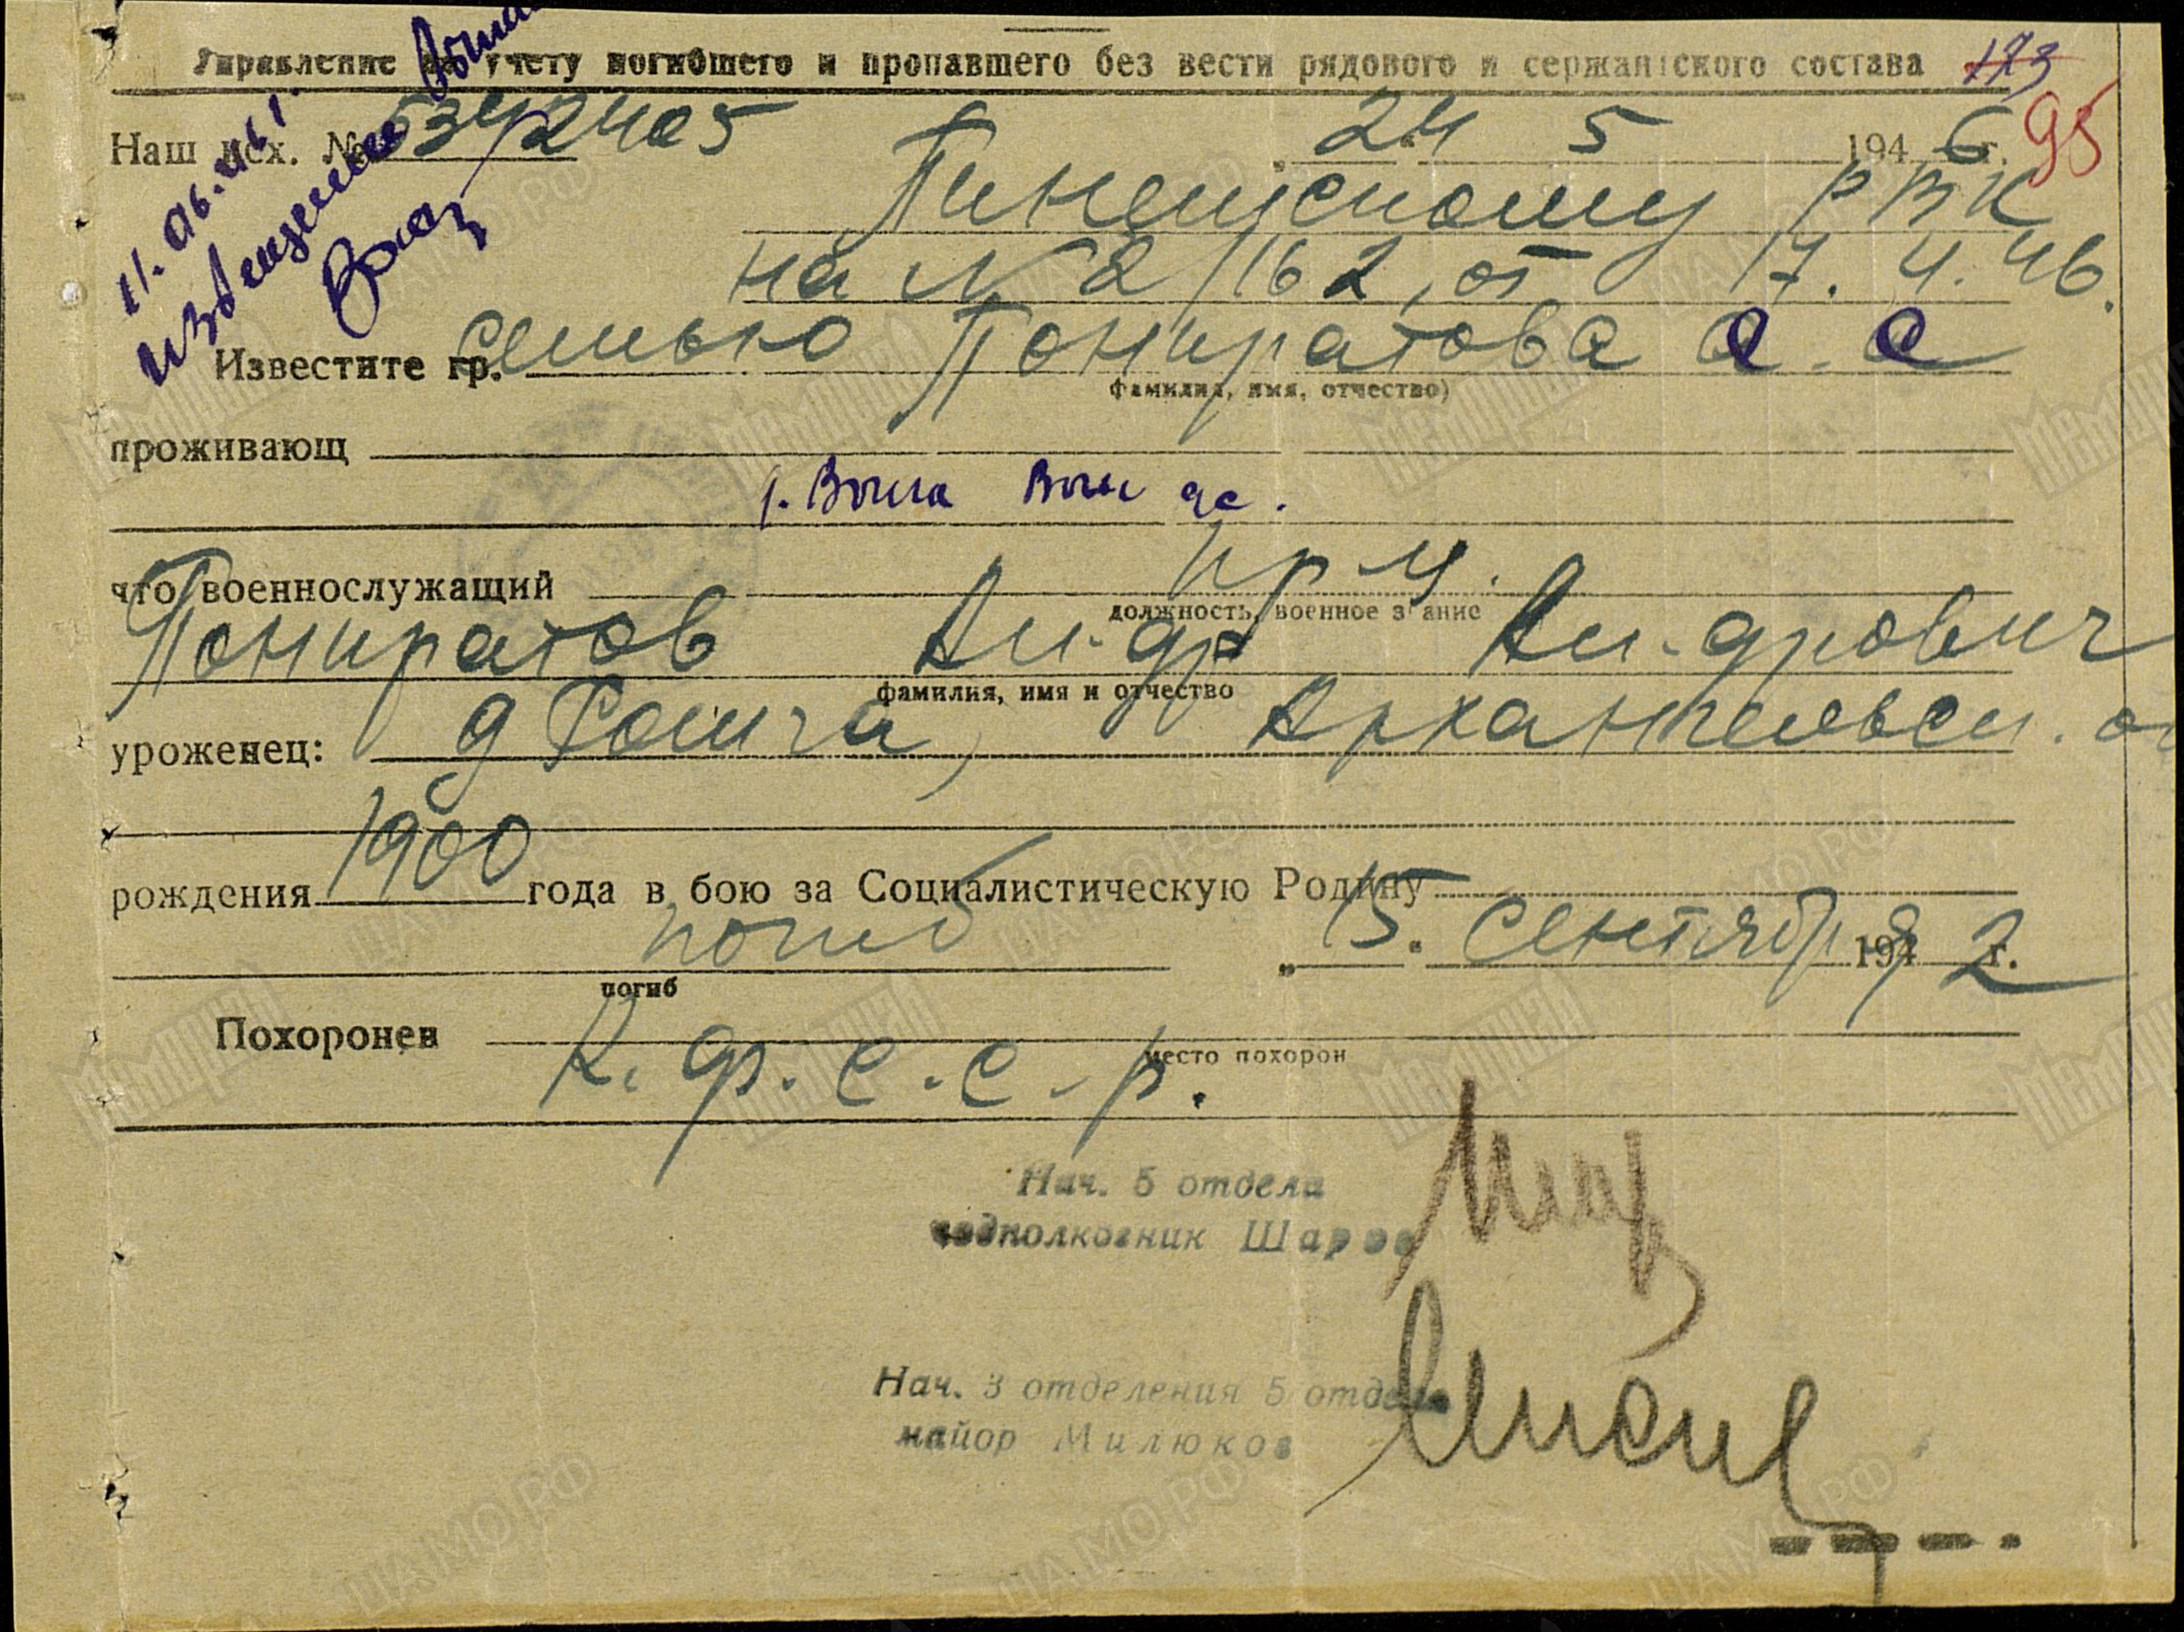 Управление по учету погибшего и пропавшего без вести рядового и сержантского состава 173
95
Наш исх. № 2405 „24" 5 1946 г.
11.06.46 г.
Пинежскому РВК
на № 2/162, от 17.4.46.
Известите гр. семью Пониратова А. А
фамилия, имя, отчество)
проживающ
что военнослужащий
должность, военное звание
Пониратов Ал-др Ал-дрович
фамилия, имя и отчество
уроженец: д Архангельск.
рождения 1900 года в бою за Социалистическую Родину
погиб „15." сентября 1942 г.
погиб
Похоронен К. Ф. С. С. Р.
место похорон
Нач. 5 отдела
подполковник Шаров
Нач. 3 отделения 5 отдела
майор Милюков
Мемориал
ЦАМО РФ